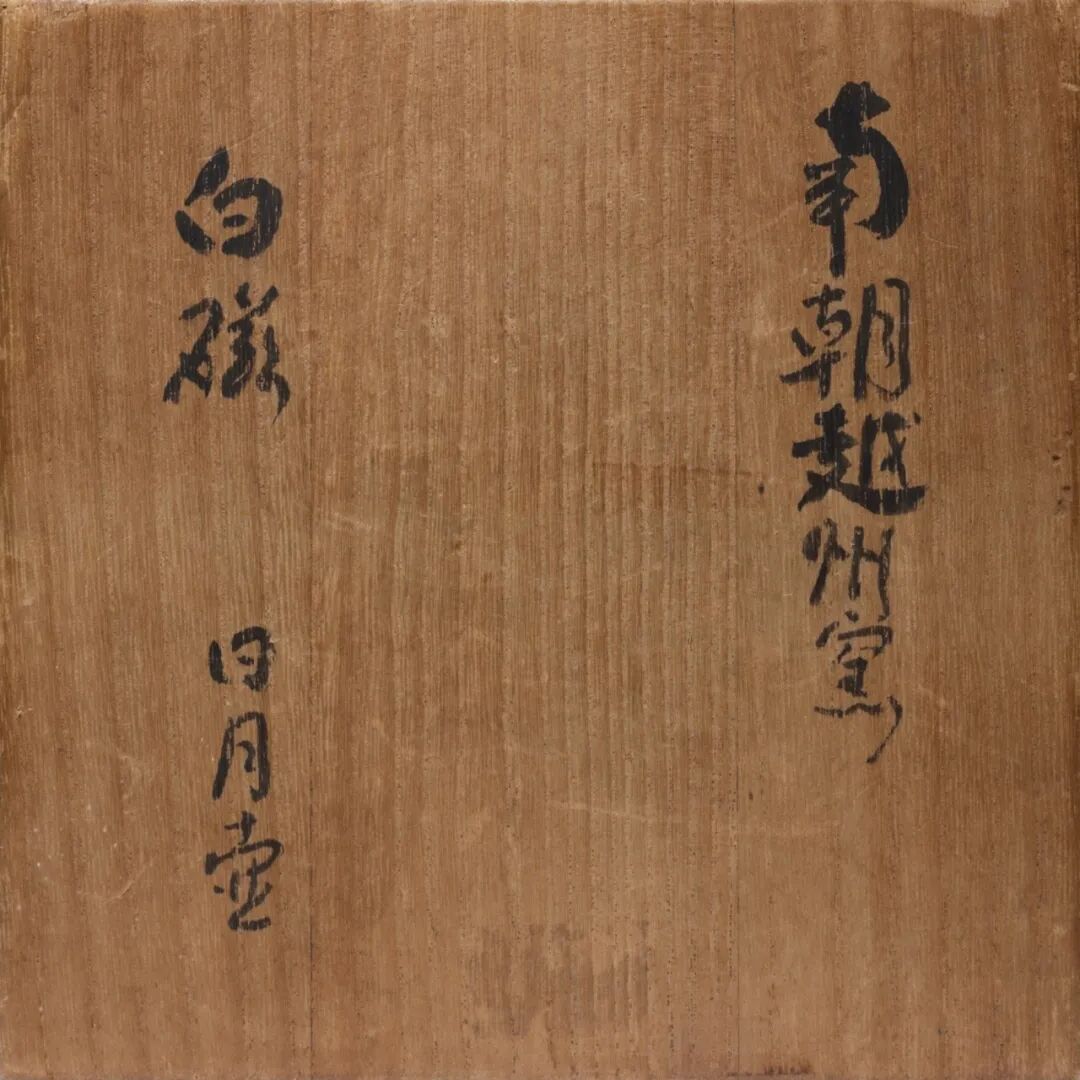 南朝越州窯
白磁　日月壷